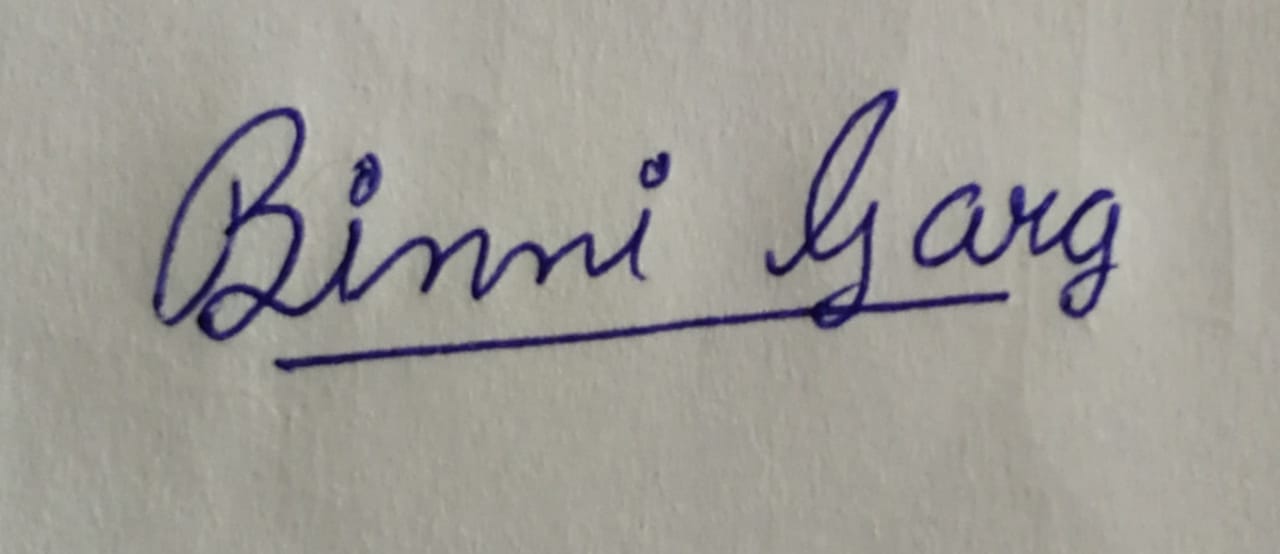 Binni Garg